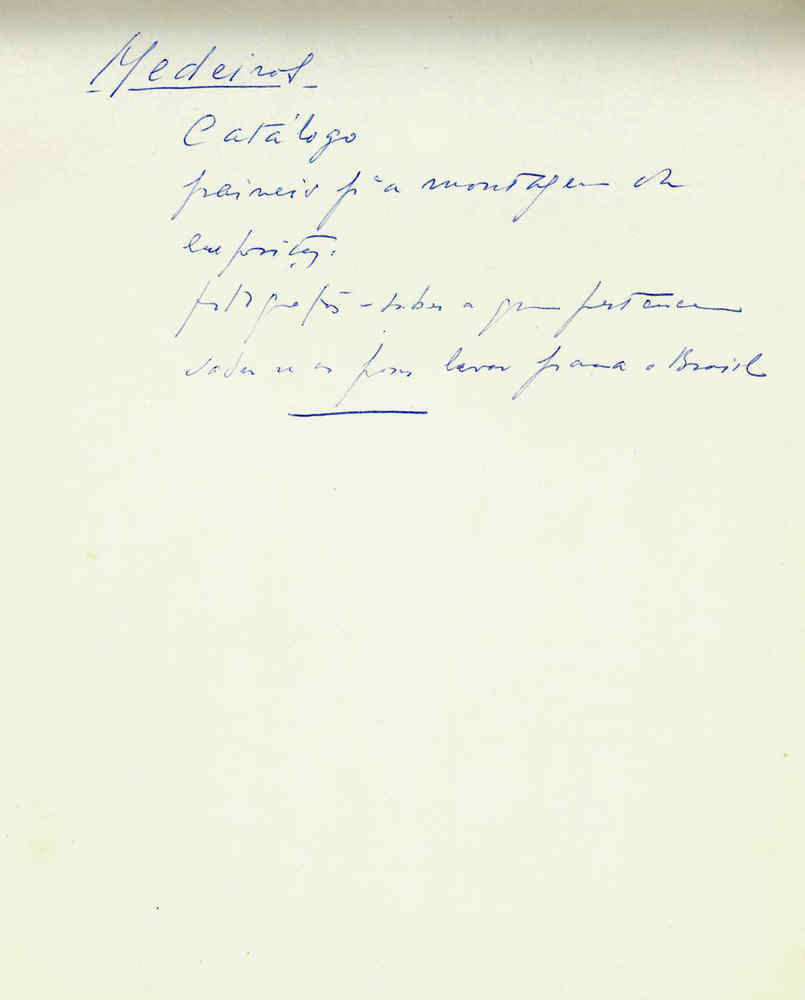 Medeiros
Catálogo
paineis pª a montagem da
exposição:
fotografias - saber a quem pertencem
saber se as posso levar para o Brasil